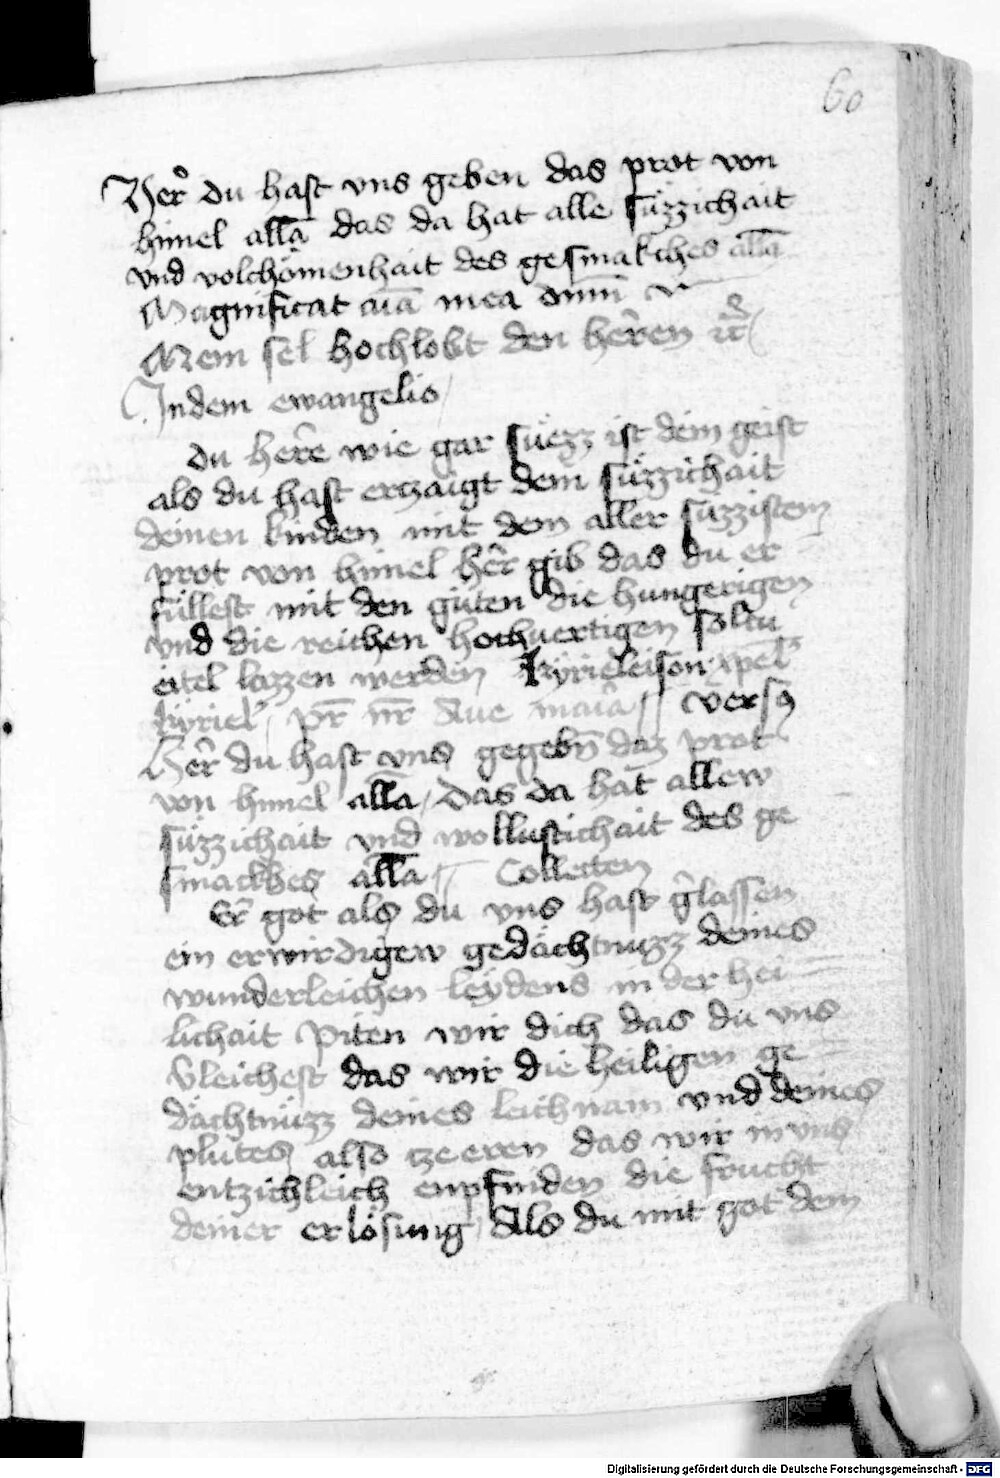 60
Her du hast vns geben das prot von
himel alla das da hat alle süzzichait
vnd volchömenhait des gesmakches alla
Magnificat aīa mea dnm̄
Mein sel hochlobt den heren
Indem ewangelio
du here wie gar süezz ist dein geist
als du hast erczaigt dein süzzichait
deinen kinden mit dem aller süzzisten
prot von himel her gib das du er
füllest mit den güten die hungerigen
vnd die reichen hochuertigen soltu
eitel lazzen werden kyrieleison xpel
kyriel pr̄ nr̄ Aue maria vers
Her du hast vns gegebn̄ daz prot
von himel alla, das da hat allew
süzzichait vnd wollustichait des ge
smackhes alla Collecten
Er got als du vns hast glassen
ein erwirdigew gedächtnuzz deines
wunderleichen leydens in der hei
lichait Piten wir dich das du vns
verleichest das wir die heiligen ge
dächtnüzz deines leichnam vnd deines
plutes also ze eren das wir in vns
entzichleich enpfinden die frucht
deiner erlösung, Als du mit got dem
Digitalisierung gefördert durch die Deutsche Forschungsgemeinschaft - DFG